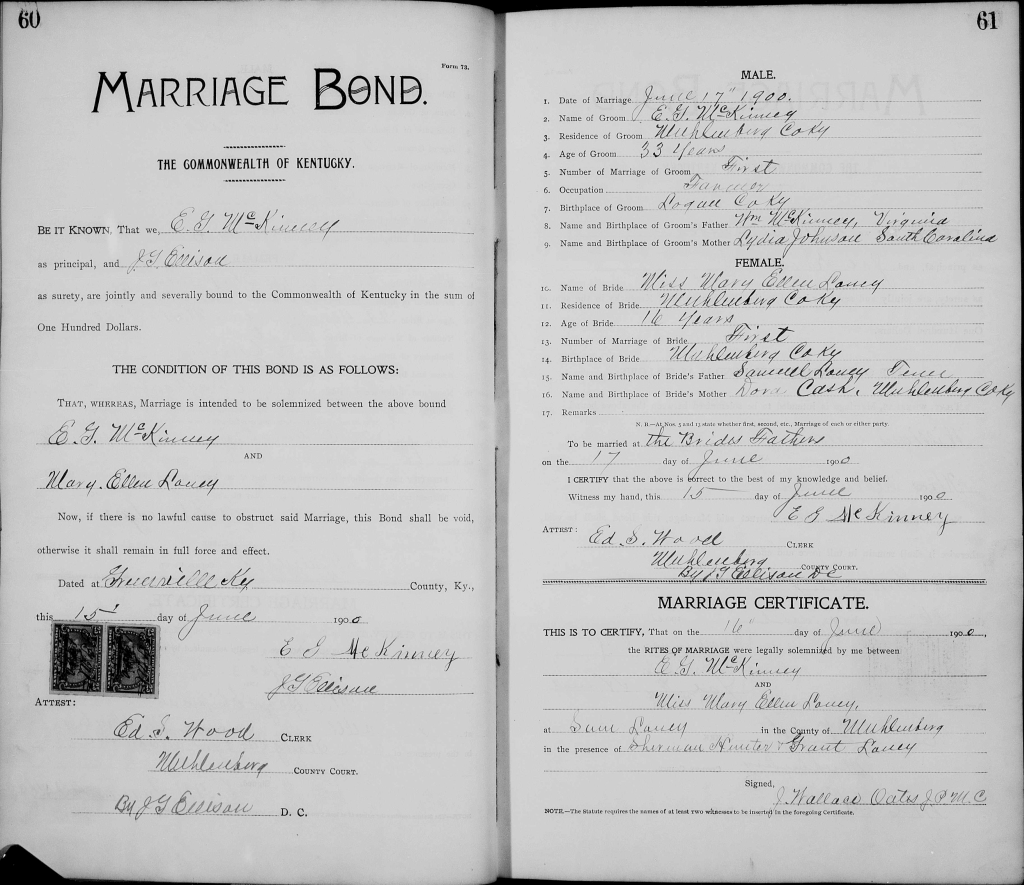 60
Form 73.
MARRIAGE BOND.
THE COMMONWEALTH OF KENTUCKY.
BE IT KNOWN, That we, E. G. McKinney
as principal, and J G Ellison
as surety, are jointly and severally bound to the Commonwealth of Kentucky in the sum of
One Hundred Dollars.
THE CONDITION OF THIS BOND IS AS FOLLOWS:
THAT, WHEREAS, Marriage is intended to be solemnized between the above bound
E. G. McKinney
AND
Mary. Ellen Laney
Now, if there is no lawful cause to obstruct said Marriage, this Bond shall be void,
otherwise it shall remain in full force and effect.
Dated at Greenville Ky County, Ky.,
this 15 day of June 1900
E G McKinney
J G Ellison
ATTEST:
Ed. S. Wood CLERK
Muhlenberg COUNTY COURT.
By J G Ellison D. C.
61
MALE.
1. Date of Marriage June 17" 1900.
2. Name of Groom E. G. McKinney
3. Residence of Groom Muhlenberg Co Ky
4. Age of Groom 33 Years
5. Number of Marriage of Groom First
6. Occupation Farmer
7. Birthplace of Groom Logan Co Ky
8. Name and Birthplace of Groom's Father Wm McKinney, Virginia
9. Name and Birthplace of Groom's Mother Lydia Johnson South Carolina
FEMALE.
10. Name of Bride Miss Mary Ellen Laney
11. Residence of Bride Muhlenberg Co Ky
12. Age of Bride 16 Years
13. Number of Marriage of Bride First
14. Birthplace of Bride Muhlenberg Co Ky
15. Name and Birthplace of Bride's Father Samuel Laney Tenn
16. Name and Birthplace of Bride's Mother Dora Cash, Muhlenberg Co Ky
17. Remarks
N. B.—At Nos. 5 and 13 state whether first, second, etc., Marriage of each or either party.
To be married at the Brides Fathers
on the 17 day of June 1900
I CERTIFY that the above is correct to the best of my knowledge and belief.
Witness my hand, this 15 day of June 1900
E G McKinney
ATTEST:
Ed. S. Wood CLERK
Muhlenberg COUNTY COURT.
By J G Ellison DC
MARRIAGE CERTIFICATE.
THIS IS TO CERTIFY, That on the 16" day of June 1900,
the RITES OF MARRIAGE were legally solemnized by me between
E. G. McKinney
AND
Miss Mary Ellen Laney,
at Sam Laney in the County of Muhlenberg
in the presence of Sherman Hunter & Grant Laney
Signed,
J. Wallace Oates J. P. M. C.
NOTE.—The Statute requires the names of at least two witnesses to be inserted in the foregoing Certificate.